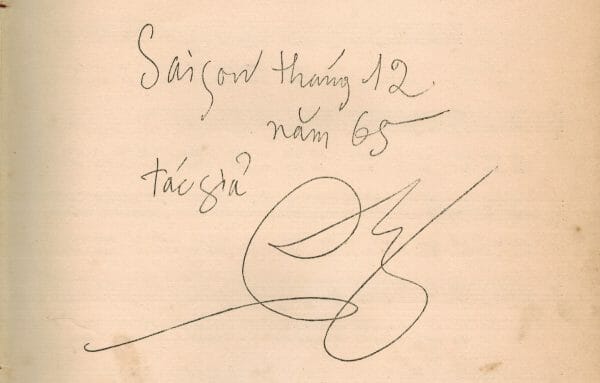 Saigon tháng 12
năm 65
tác giả